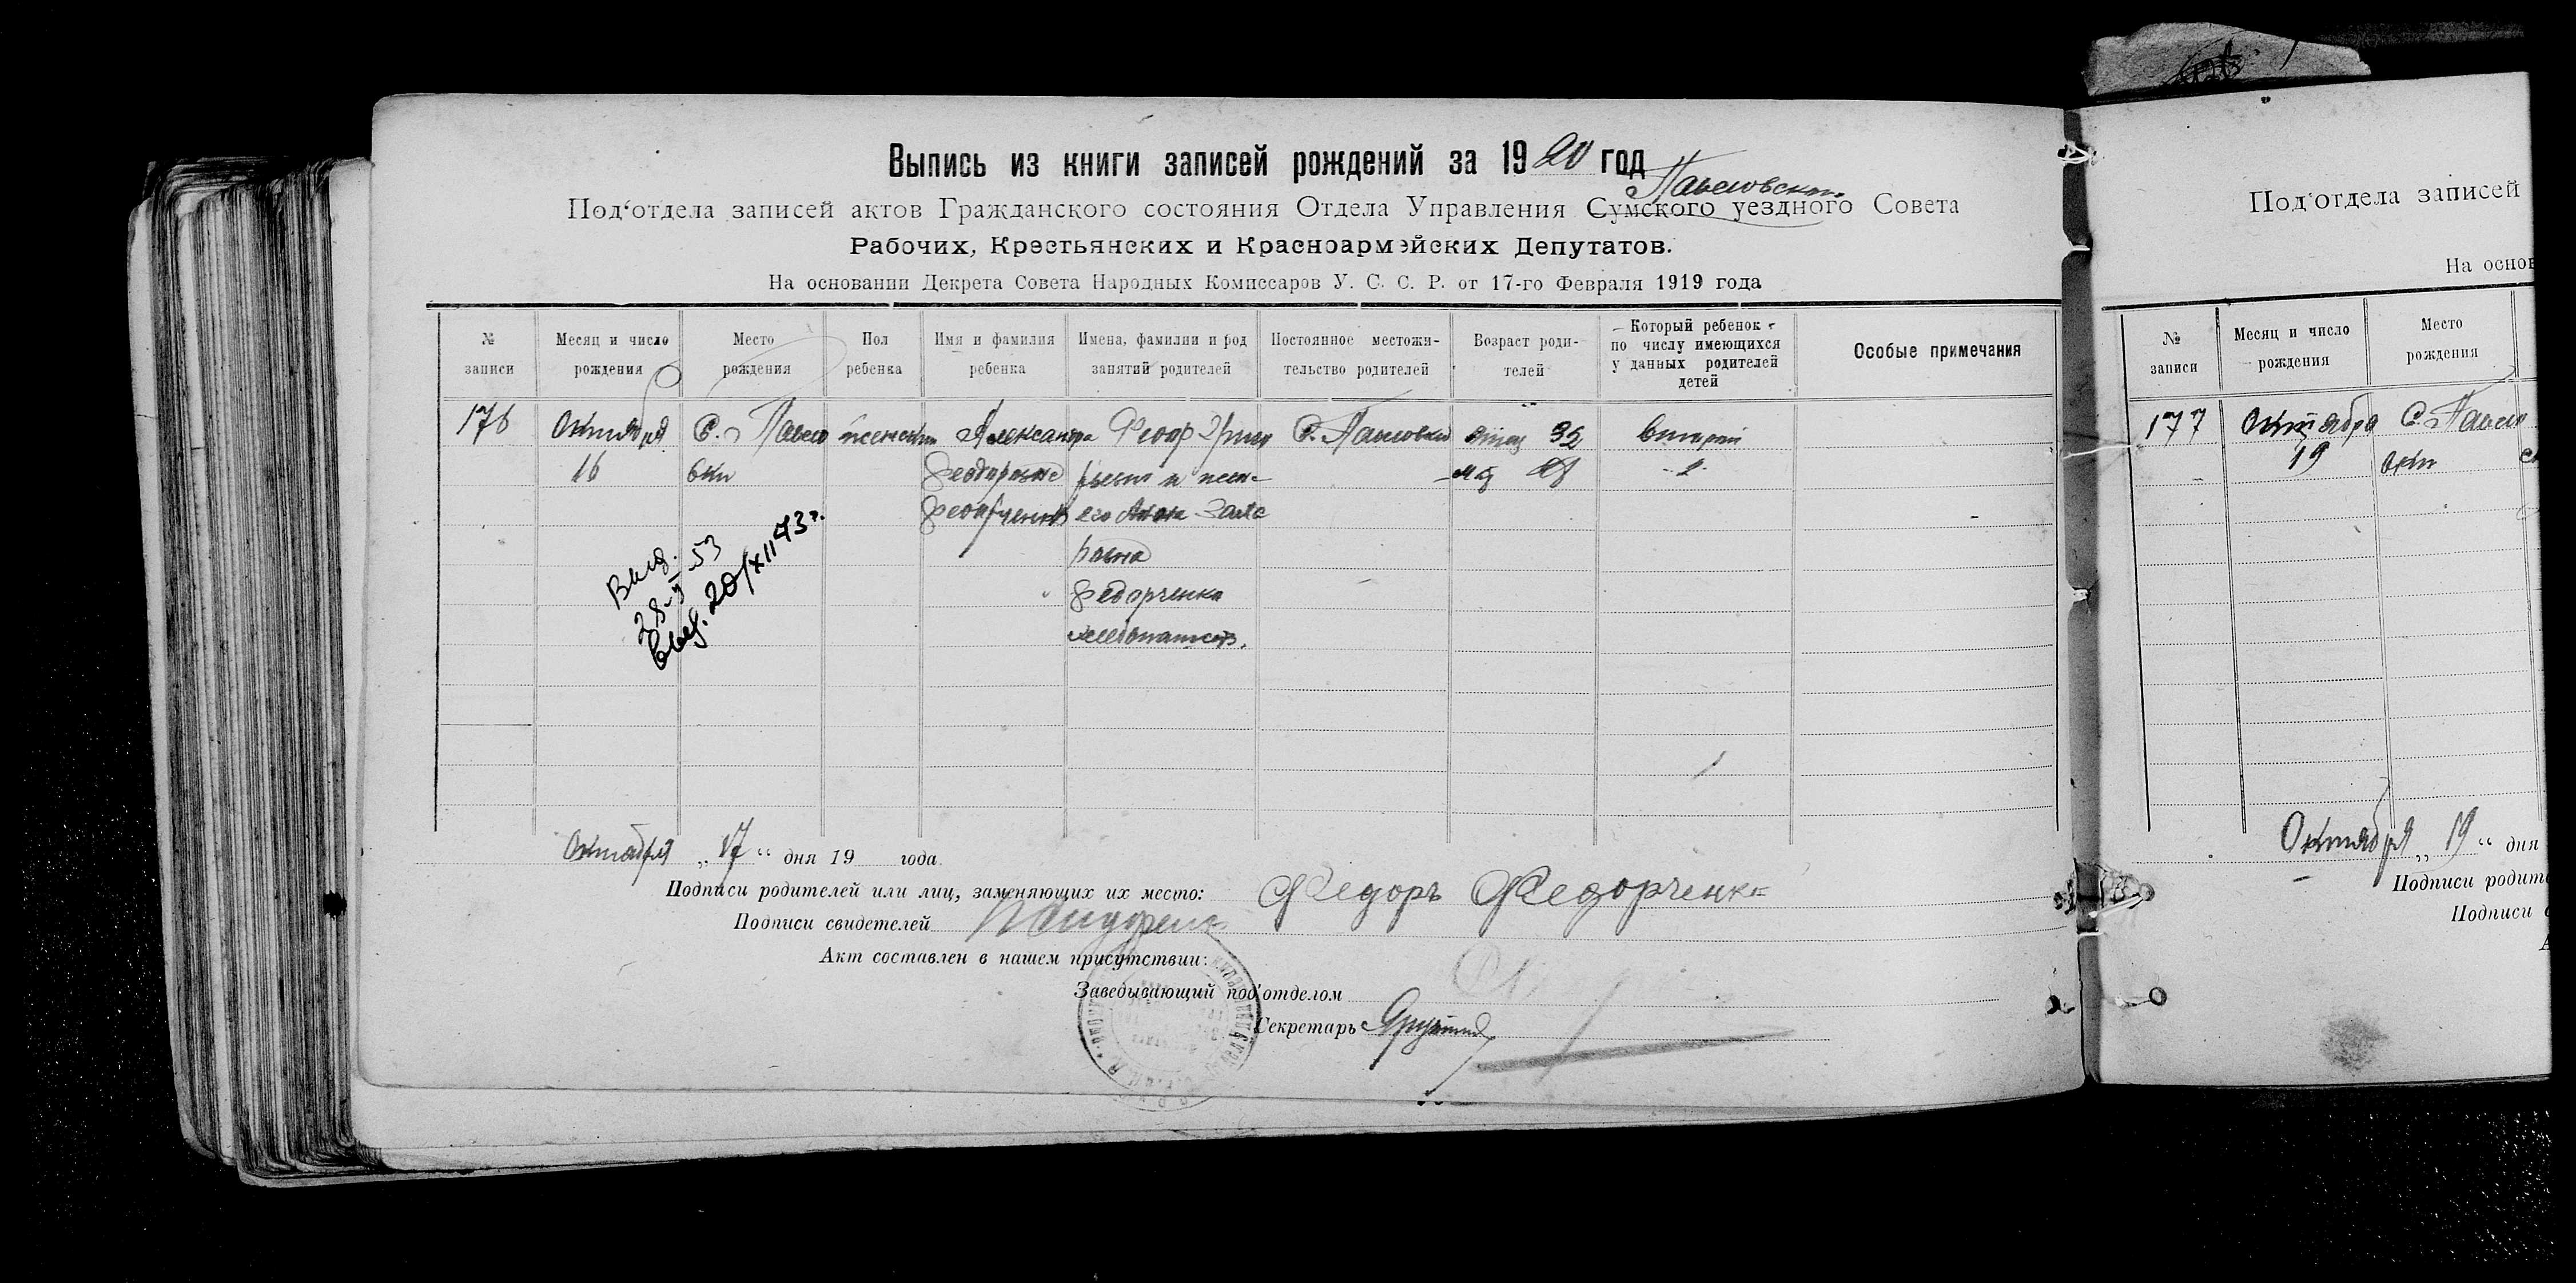 Выпись из книги записей рождений за 1920 год
Павловского
Под‘отдела записей актов Гражданского состояния Отдела Управления Сумского уездного Совета
Рабочих, Крестьянских и Красноармейских Депутатов.
На основании Декрета Совета Народных Комиссаров У. С. С. Р. от 17-го Февраля 1919 года
№ записи
Месяц и число рождения
Место рождения
Пол ребенка
Имя и фамилия ребенка
Имена, фамилии и род занятий родителей
Постоянное местожи-
тельство родителей
Возраст роди-
телей
Который ребенок
по числу имеющихся
у данных родителей
детей
Особые примечания
176
Октября
16
С. Павло
вки
женский
Александра
Федоровна
Федорченко
Феодр Григ
рьевич и жен-
его Анна Заха
ровна
Федорченко
С. Павловки
Отец 35
второй
2
Выд.
28-V-53
Выд. 20/XII 43 г.
Октября „17“ дня 19 года
Подписи родителей или лиц, заменяющих их место: Федоръ Федорченко
Подписи свидетелей
Акт составлен в нашем присутствии:
Заведывающий под‘отделом
Секретарь
Под‘отдела записей
На основ
№ записи
Месяц и число рождения
Место рождения
177
Октября
19
С. Павло
вки
Октября „19“ дня
Подписи родите
Подписи с
А